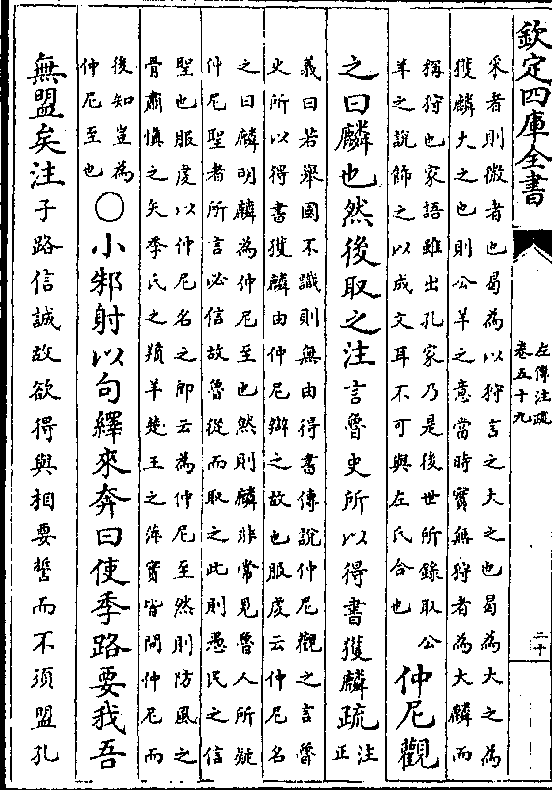 欽定四庫全書
左傳注疏
卷五十九
二十
采者則微者也曷為以狩言之大之也曷為大之為
獲麟大之也則公羊之意當時實無狩者為大麟而
稱狩也家語雖出孔家乃是後世所錄取公
羊之說飾之以成文耳不可與左氏合也
仲尼觀
之曰麟也然後取之注言魯史所以得書獲麟疏
注
正
義曰若舉國不識則無由得書傳說仲尼觀之言魯
史所以得書獲麟由仲尼辨之故也服虔云仲尼名
之曰麟明麟為仲尼至也然則麟非常見魯人所疑
仲尼聖者所言必信故魯從而取之此則愚民之信
聖也服虔以仲尼名之即云為仲尼至然則防風之
骨肅慎之矢季氏之羵羊楚王之萍實皆問仲尼而
後知豈為
仲尼至也
○小邾射以句繹來奔曰使季路要我吾
無盟矣注子路信誠故欲得與相要誓而不須盟孔